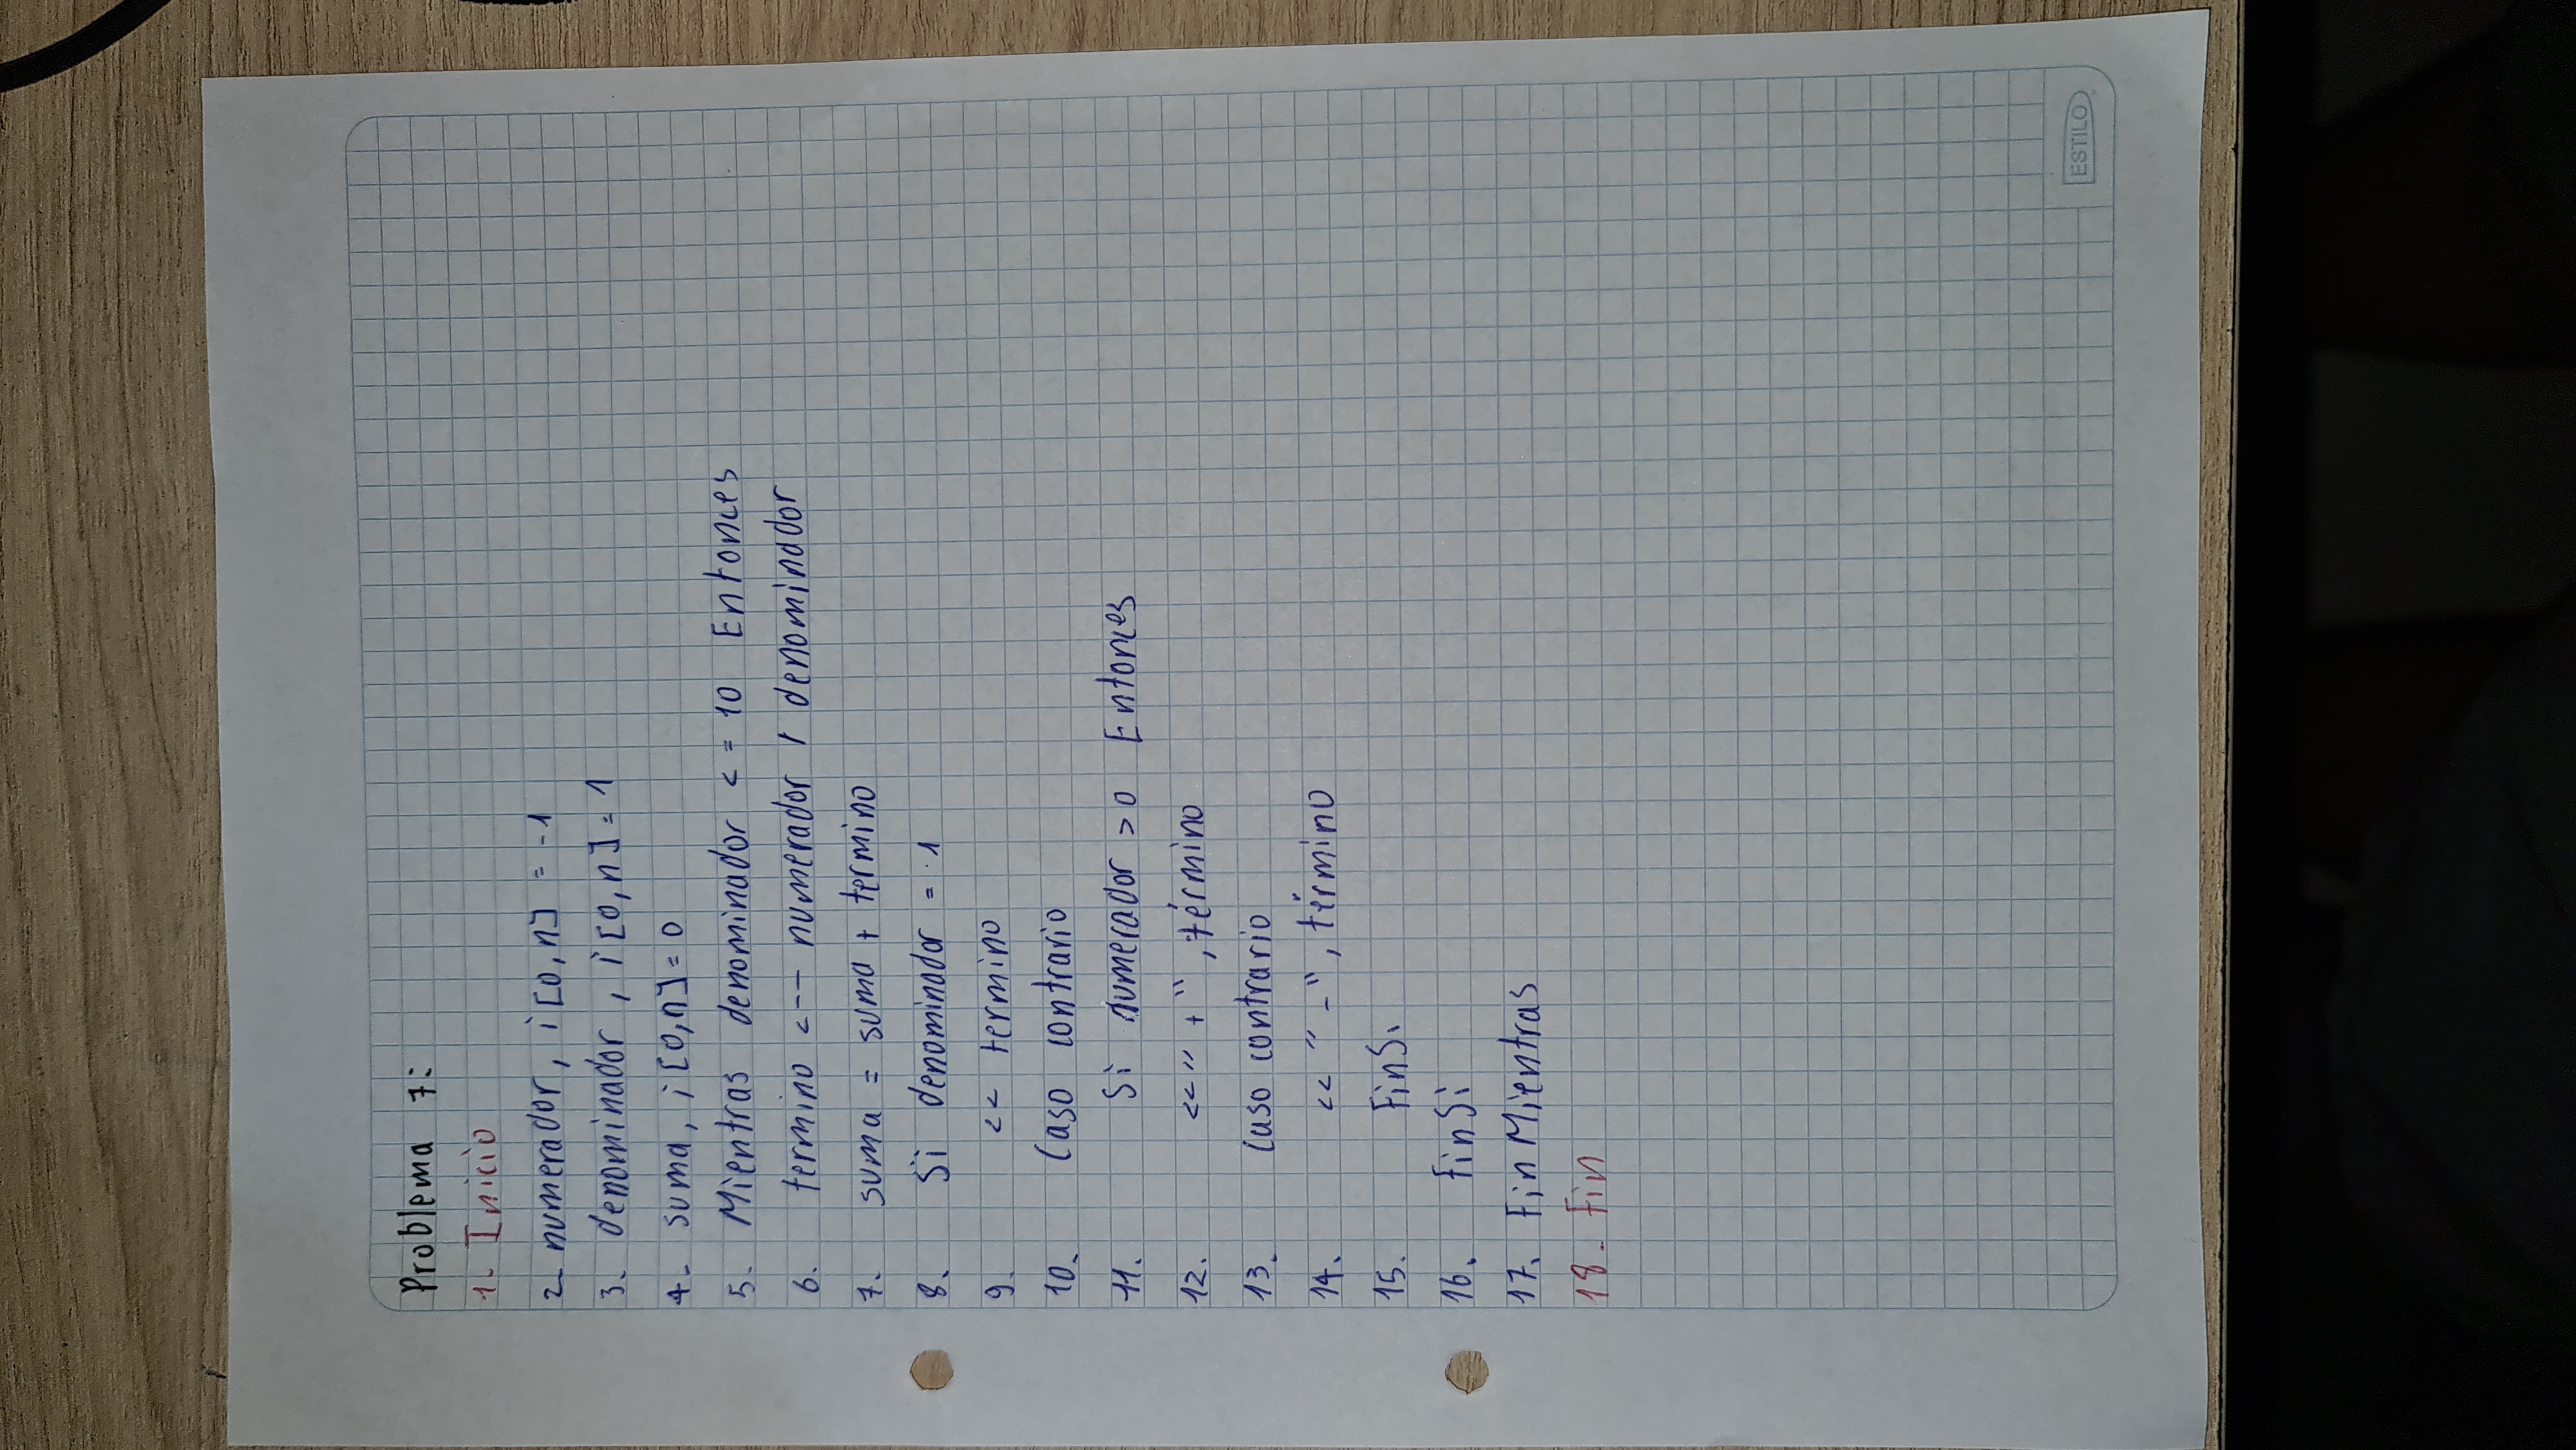 Problema 7:
1- Inicio
2- numerador, i[0,n] = -1
3. denominador, i[0,n] = 1
4- suma, i[0,n] = 0
5. Mientras denominador <= 10 Entonces
6. termino <-- numerador / denominador
7. suma = suma + termino
8. Si denominador = 1
9. << termino
10. Caso contrario
11. Si numerador > 0 Entonces
12. << " + ", término
13. Caso contrario
14. << " - ", término
15. FinSi
16. FinSi
17. FinMientras
18. Fin
ESTILO